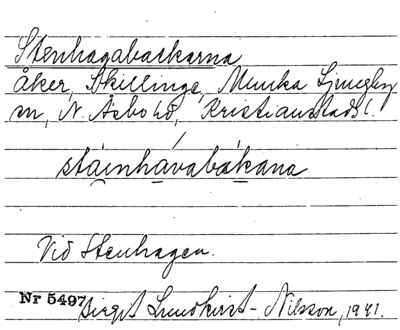 Stenhagabackarna
åker, Skillinge, Munka Ljungby
sn, N. Åsbo hd, Kristianstads l.
stáinhávabákana
Vid Stenhagen.
Nr 5497 Birgit Lundkvist-Nilsson, 1941.